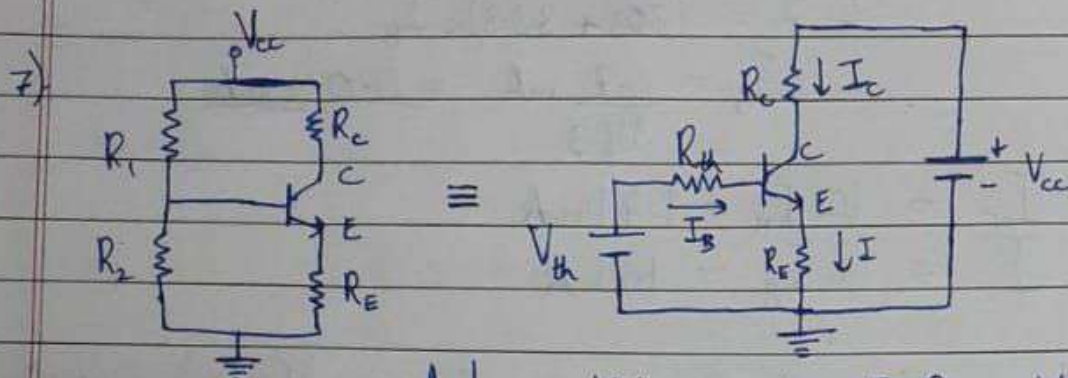 7)
V_cc
R_1
R_c
C
E
R_2
R_E
≡
R_c ↓ I_c
R_th
C
+
-
V_cc
I_B
E
V_th
R_E ↓ I